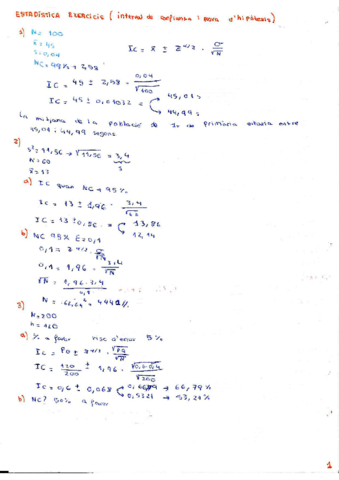 ESTADÍSTICA EXERCICIS ( interval de confiança i prova d'hipòtesis)
1) N = 100
x̄ = 45
S = 0,04
NC = 99% → 2,58
IC = x̄ ± Z α/2 · σ/√N
IC = 45 ± 2,58 · 0,04/√100
IC = 45 ± 0,01032 =
45,01 s
44,99 s
La mitjana de la població de 1r de primària estaria entre
45,01 i 44,99 segons
2)
s² = 11,56 → √11,56 = 3,4
s
N = 60
x̄ = 13
a) IC quan NC → 95%
IC = 13 ± 1,96 · 3,4/
IC = 13 ± 0,86 =
13,86
12,14
b) NC 95% E = 0,1
0,1 = Z α/2 · σ/√N
0,1 = 1,96 · 3,4/√N
√N = 1,96 · 3,4/0,1
N = 66,64² = 4441
3)
N = 200
n = 120
a) % a favor risc d'error 5%
IC = P0 ± Z α/2 · √PQ/√N
IC = 120/200 ± 1,96 · √0,6·0,4/√200
IC = 0,6 ± 0,068
0,6679 → 66,79%
0,5321 → 53,21%
b) NC? 50% a favor
1